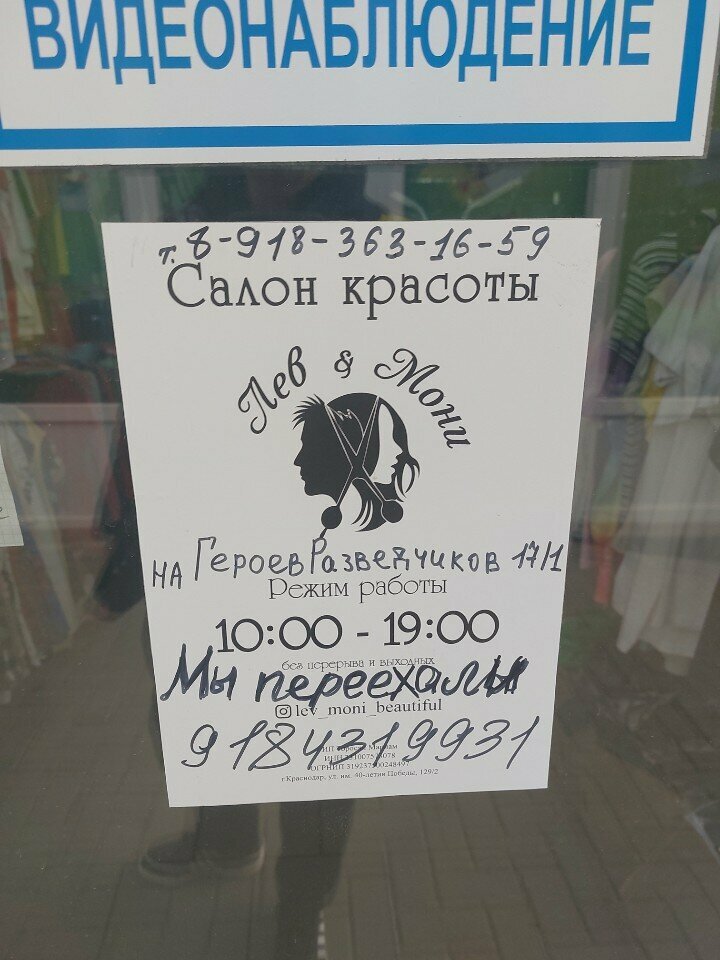 ВИДЕОНАБЛЮДЕНИЕ
т. 8-918-363-16-59
Салон красоты
Лев & Мони
на Героев Разведчиков 17/1
Режим работы
10:00 - 19:00
без перерыва и выходных
Мы переехали
lev_moni_beautiful
9184319931
ИП
ИНН
ОГРНИП
г.Краснодар, ул. им. 40-летия Победы, 129/2